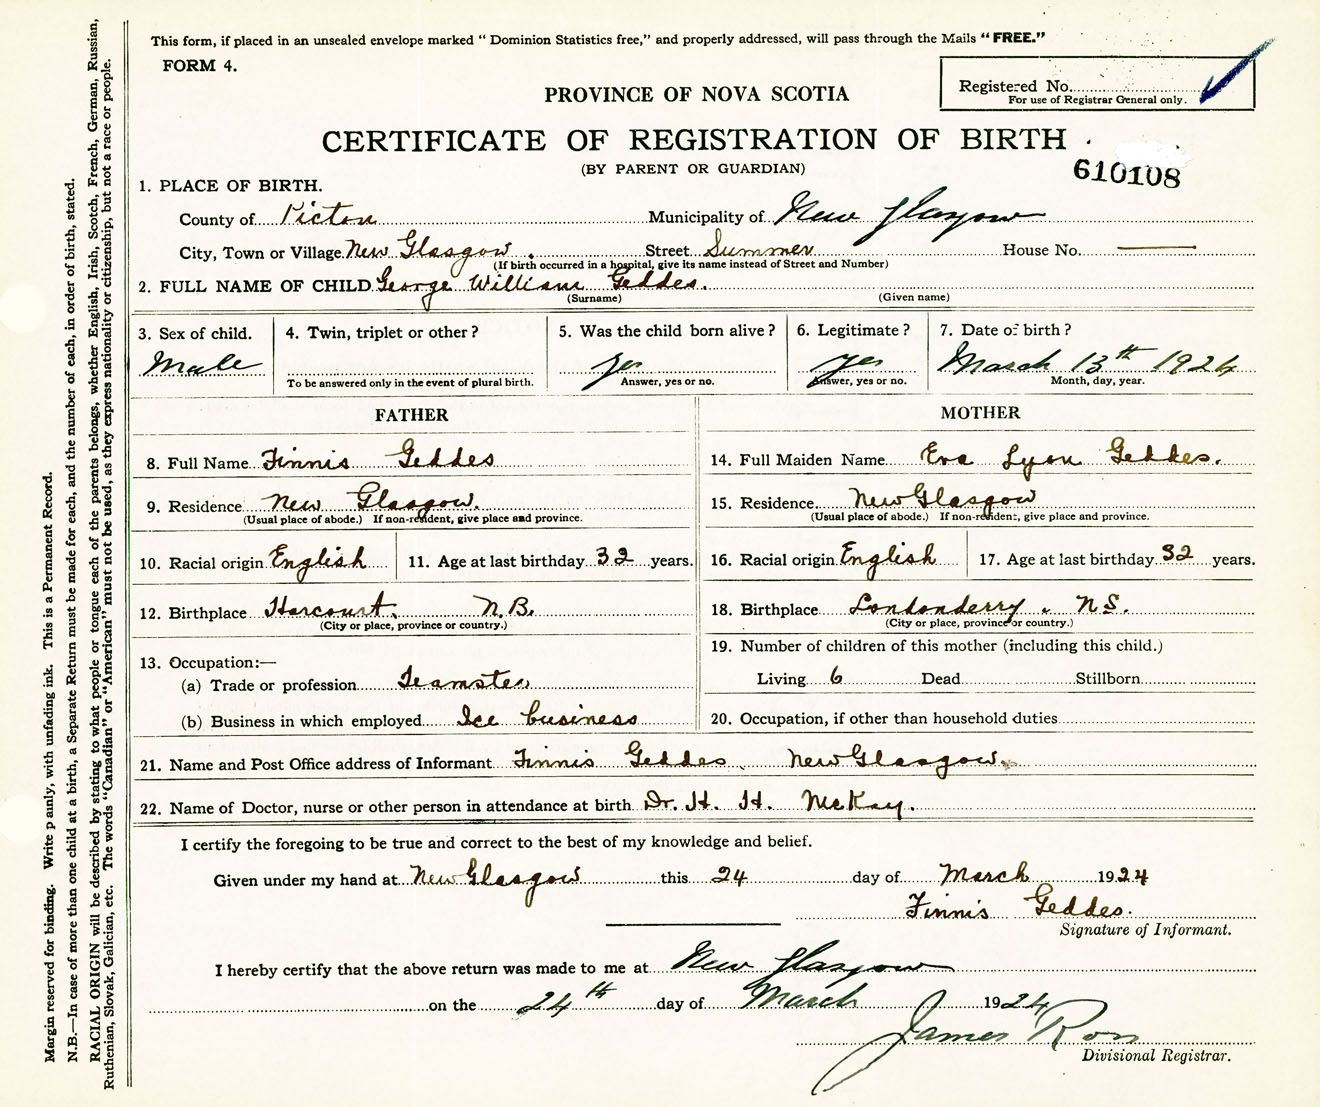 This form, if placed in an unsealed envelope marked "Dominion Statistics free," and properly addressed, will pass through the Mails "FREE."
FORM 4.
Registered No.
For use of Registrar General only.
PROVINCE OF NOVA SCOTIA
CERTIFICATE OF REGISTRATION OF BIRTH
(BY PARENT OR GUARDIAN)
610108
1. PLACE OF BIRTH.
County of Pictou Municipality of New Glasgow
City, Town or Village New Glasgow. Street Summer House No. —
(If birth occurred in a hospital, give its name instead of Street and Number)
2. FULL NAME OF CHILD George William Geddes.
(Surname) (Given name)
3. Sex of child. 4. Twin, triplet or other? 5. Was the child born alive? 6. Legitimate? 7. Date of birth?
Male yes yes March 13th 1924
To be answered only in the event of plural birth. Answer, yes or no. Answer, yes or no. Month, day, year.
FATHER
8. Full Name Finnis Geddes
9. Residence New Glasgow.
(Usual place of abode.) If non-resident, give place and province.
10. Racial origin English 11. Age at last birthday 32 years.
12. Birthplace Harcourt, N.B.
(City or place, province or country.)
13. Occupation:—
(a) Trade or profession Teamster
(b) Business in which employed Ice business
MOTHER
14. Full Maiden Name Eva Lyon Geddes.
15. Residence New Glasgow
(Usual place of abode.) If non-resident, give place and province.
16. Racial origin English 17. Age at last birthday 32 years.
18. Birthplace Londonderry. N.S.
(City or place, province or country.)
19. Number of children of this mother (including this child.)
Living 6 Dead Stillborn
20. Occupation, if other than household duties
21. Name and Post Office address of Informant Finnis Geddes. New Glasgow.
22. Name of Doctor, nurse or other person in attendance at birth Dr. H. H. McKay.
I certify the foregoing to be true and correct to the best of my knowledge and belief.
Given under my hand at New Glasgow this 24 day of March 1924
Finnis Geddes.
Signature of Informant.
I hereby certify that the above return was made to me at New Glasgow
on the 24th day of March 1924
James Ron
Divisional Registrar.
Margin reserved for binding. Write plainly, with unfading ink. This is a Permanent Record.
N.B.—In case of more than one child at a birth, a Separate Return must be made for each, and the number of each, in order of birth, stated.
RACIAL ORIGIN will be described by stating to what people or tongue each of the parents belongs, whether English, Irish, Scotch, French, German, Russian,
Ruthenian, Slovak, Galician, etc. The words "Canadian" or "American" must not be used, as they express nationality or citizenship, but not a race or people.